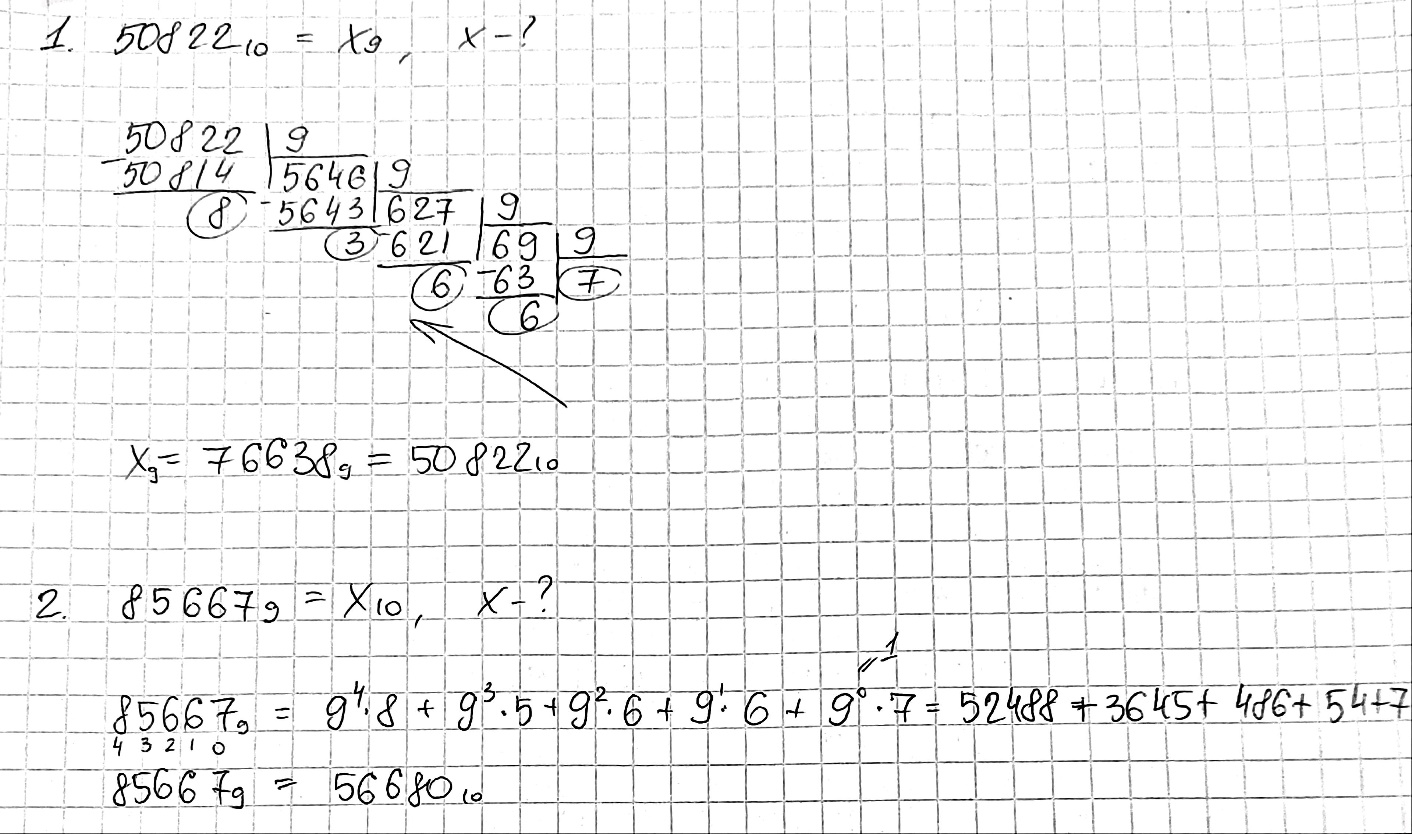 1. 50822₁₀ = X₉, X-?
50822 | 9
-50814 | 5646 | 9
8 -5643 | 627 | 9
3 -621 | 69 | 9
6 -63 | 7
6
X₉ = 76638₉ = 50822₁₀
2. 85667₉ = X₁₀, X-?
"1
85667₉ = 9⁴·8 + 9³·5 + 9²·6 + 9¹·6 + 9⁰·7 = 52488 + 3645 + 486 + 54 + 7
4 3 2 1 0
85667₉ = 56680₁₀